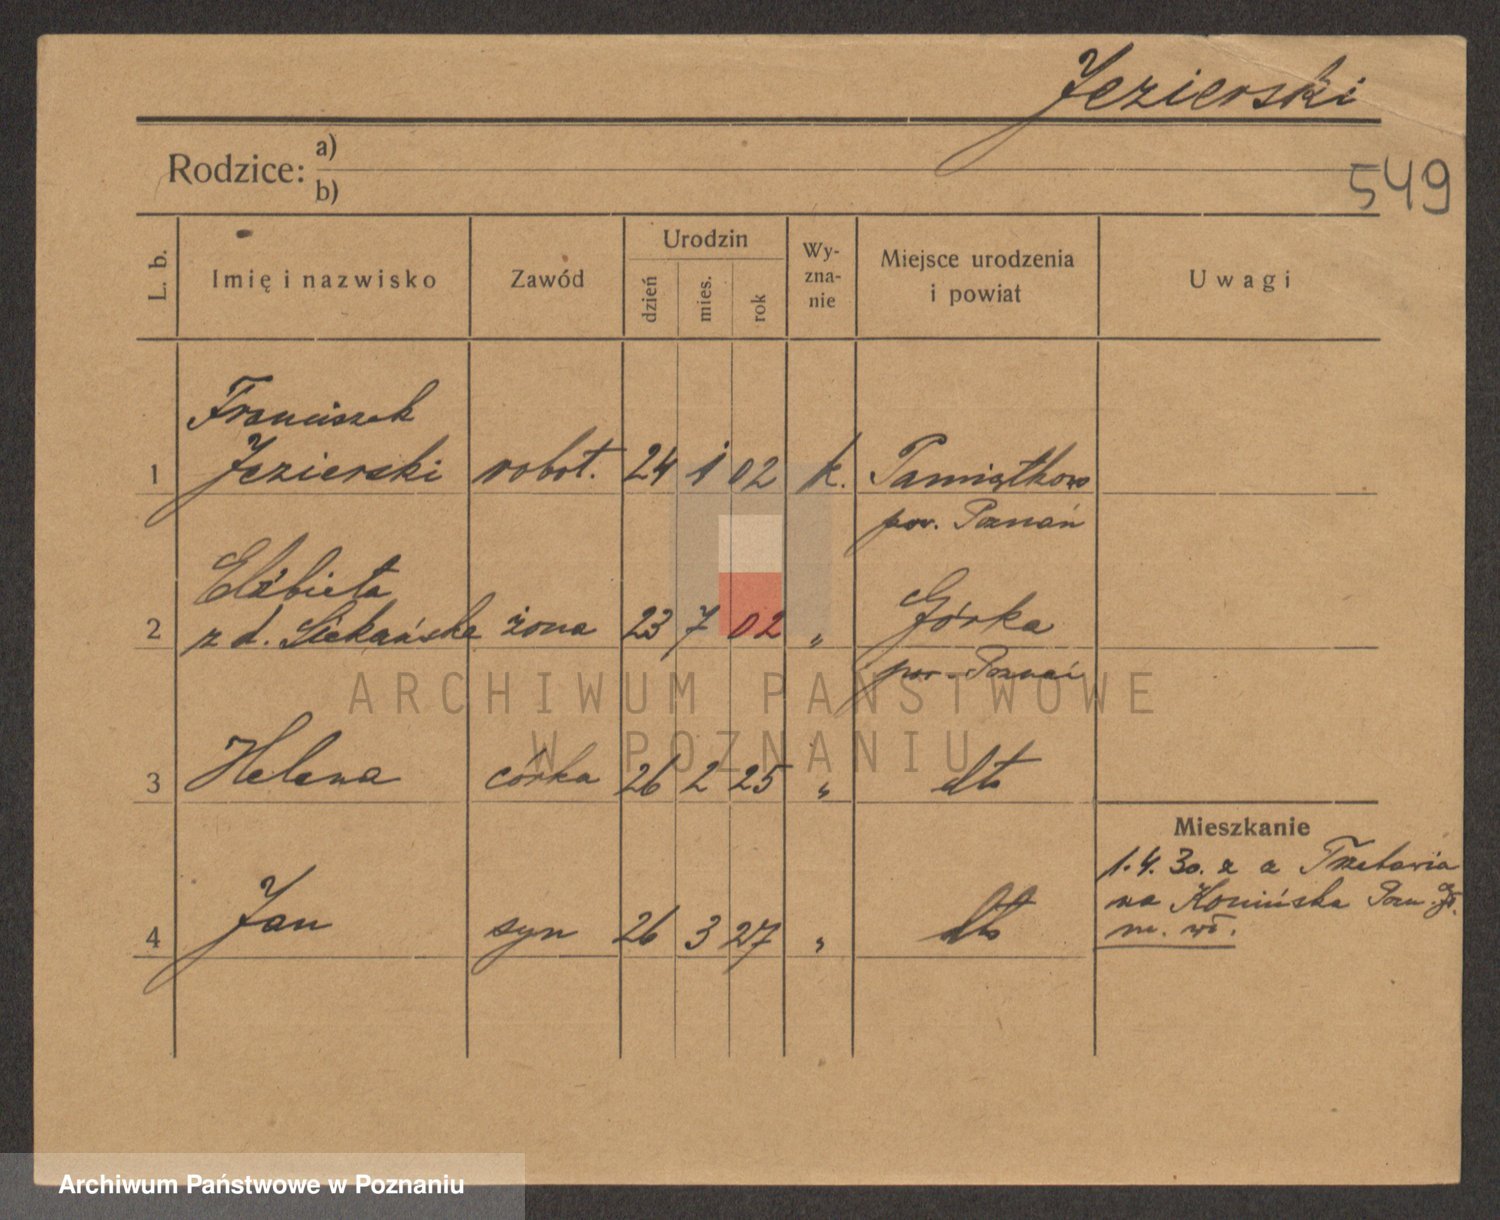 Jezierski
Rodzice: a)
b)
549
L. b. Imię i nazwisko Zawód Urodzin dzień mies. rok Wy-zna-nie Miejsce urodzenia i powiat Uwagi
Franciszek
1 Jezierski robot. 24 1 02 k. Pamiątkowo
pow. Poznań
Elżbieta
2 z d. żona 23 7 02 „ Górka
pow. Poznań
3 Helena córka 26 2 25 „ dto
Mieszkanie
1.4.30. z
na Pozn.
4 Jan syn 26 3 27 „ dto
ARCHIWUM PAŃSTWOWE
W POZNANIU
Archiwum Państwowe w Poznaniu